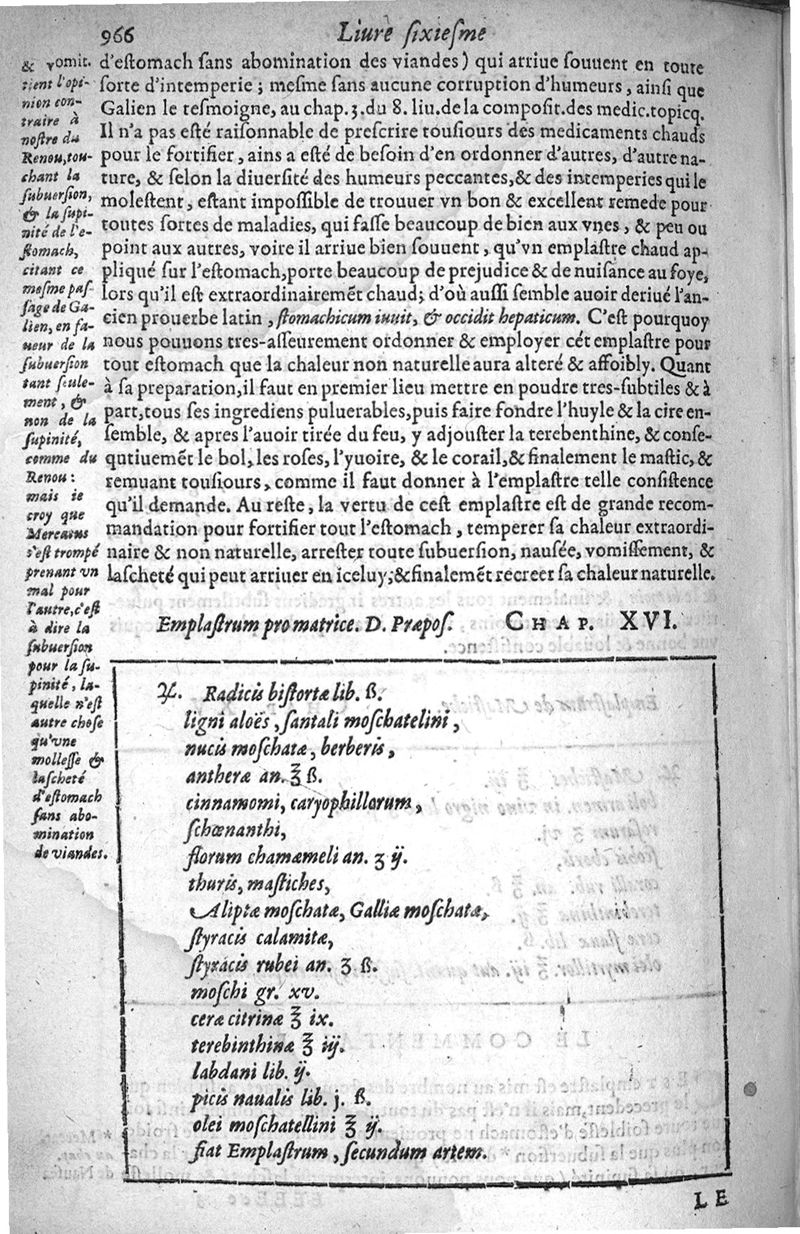 966
Liure sixiesme
d'estomach sans abomination des viandes) qui arriue souuent en toute
sorte d'intemperie; mesme sans aucune corruption d'humeurs, ainsi que
Galien le tesmoigne, au chap. 3. du 8. liu. de la composit. des medic. topicq.
Il n'a pas esté raisonnable de prescrire tousiours des medicaments chauds
pour le fortifier, ains a esté de besoin d'en ordonner d'autres, d'autre na-
ture, & selon la diuersité des humeurs peccantes, & des intemperies qui le
molestent, estant impossible de trouuer vn bon & excellent remede pour
toutes sortes de maladies, qui fasse beaucoup de bien aux vnes, & peu ou
point aux autres, voire il arriue bien souuent, qu'vn emplastre chaud ap-
pliqué sur l'estomach, porte beaucoup de prejudice & de nuisance au foye,
lors qu'il est extraordinairemēt chaud; d'où aussi semble auoir deriué l'an-
cien prouerbe latin, stomachicum iuuit, & occidit hepaticum. C'est pourquoy
nous pouuons tres-asseurement ordonner & employer cét emplastre pour
tout estomach que la chaleur non naturelle aura alteré & affoibly. Quant
à sa preparation, il faut en premier lieu mettre en poudre tres-subtiles & à
part, tous ses ingrediens puluerables, puis faire fondre l'huyle & la cire en-
semble, & apres l'auoir tirée du feu, y adjouster la terebenthine, & conse-
qutiuemēt le bol, les roses, l'yuoire, & le corail, & finalement le mastic, &
remuant tousiours, comme il faut donner à l'emplastre telle consistence
qu'il demande. Au reste, la vertu de cest emplastre est de grande recom-
mandation pour fortifier tout l'estomach, temperer sa chaleur extraordi-
naire & non naturelle, arrester toute subuersion, nausée, vomissement, &
lascheté qui peut arriuer en iceluy; & finalemēt recreer sa chaleur naturelle.
& vomit.
tient l'opi-
nion con-
traire à
nostre du
Renou, tou-
chant la
subuersion,
& la supi-
nité de l'e-
stomach,
citant ce
mesme pas-
sage de Ga-
lien, en fa-
ueur de la
subuersion
tant seule-
ment, &
non de la
supinité,
comme du
Renou:
mais ie
croy que
Mercatus
s'est trompé
prenant vn
mal pour
l'autre, c'est
à dire la
subuersion
pour la su-
pinité, la-
quelle n'est
autre chose
qu'vne
mollesse &
lascheté
d'estomach
sans abo-
mination
de viandes.
Emplastrum pro matrice. D. Præpos. CHAP. XVI.
♃. Radicis bistortæ lib. ß.
ligni aloës, santali moschatelini,
nucis moschatæ, berberis,
antheræ an. ℥ ß.
cinnamomi, caryophillorum,
schœnanthi,
florum chamæmeli an. ʒ ij.
thuris, mastiches,
Aliptæ moschatæ, Galliæ moschatæ,
styracis calamitæ,
styracis rubei an. ʒ ß.
moschi gr. xv.
ceræ citrinæ ℥ ix.
terebinthinæ ℥ iij.
labdani lib. ij.
picis naualis lib. j. ß.
olei moschatellini ℥ ij.
fiat Emplastrum, secundum artem.
LE